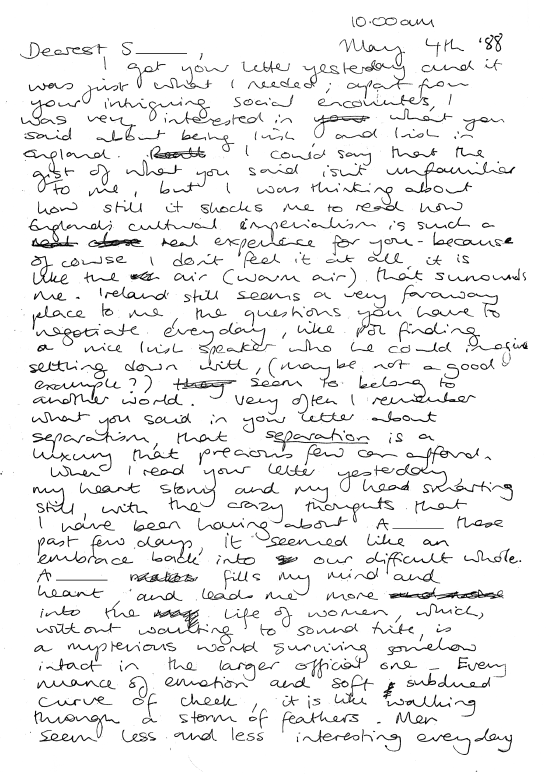 10.00am
Dearest S____, May 4th '88
I got your letter yesterday and it
was just what I needed; apart from
your intriguing social encounters, I
was very interested in your what you
said about being Irish and Irish in
England. I could say that the
gist of what you said isn't unfamiliar
to me, but I was thinking about
how still it shocks me to read how
England's cultural imperialism is such a
real experience for you - because
of course I don't feel it at all, it is
like the air (warm air) that surrounds
me. Ireland still seems a very faraway
place to me, the questions you have to
negotiate everyday, like P. finding
a nice Irish speaker who he could imagine
settling down with, (maybe not a good
example?) they seem to belong to
another world. Very often I remember
what you said in your letter about
separatism, that separation is a
luxury that precious few can afford.
When I read your letter yesterday,
my heart stony and my head smarting
still, with the crazy thoughts that
I have been having about A____ these
past few days, it seemed like an
embrace back into our difficult whole.
A____ fills my mind and
heart and leads me more
into the life of women, which,
without wanting to sound trite, is
a mysterious world surviving somehow
intact in the larger official one - Every
nuance of emotion and soft subdued
curve of cheek, it is like walking
through a storm of feathers. Men
seem less and less interesting everyday